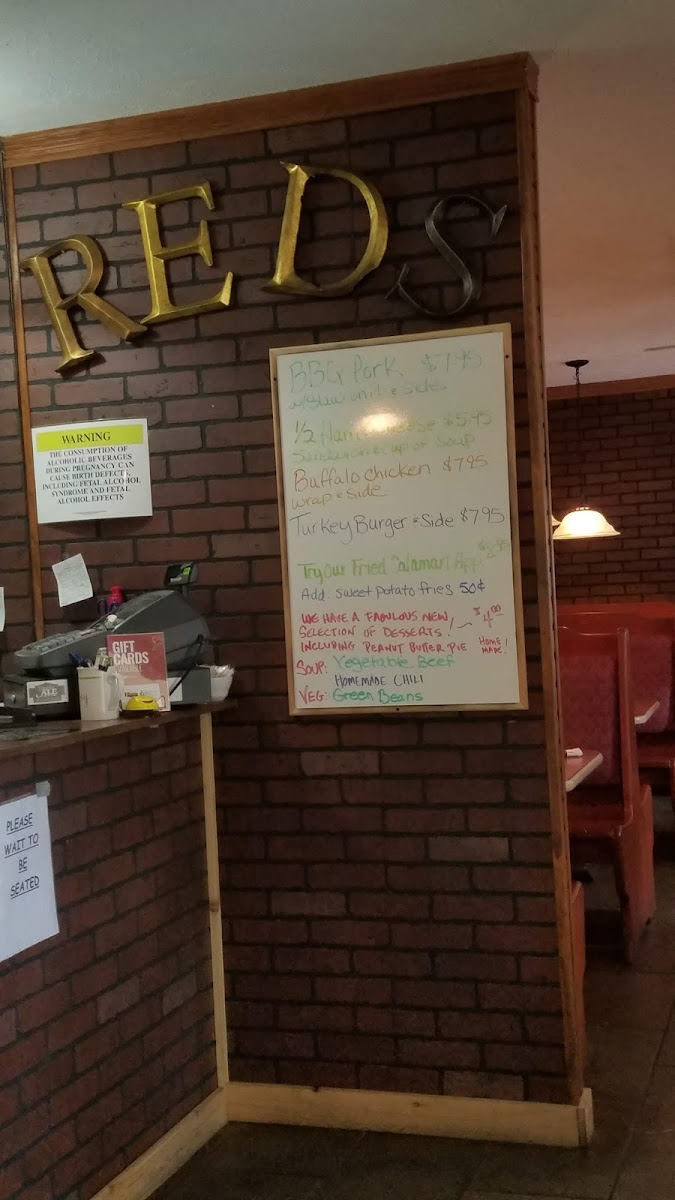 REDS
BBQ Pork $7.95
w/slaw onli & side
1/2 Ham Cheese $5.95
Sandwich & cup of Soup
Buffalo chicken $7.95
wrap & side
Turkey Burger & Side $7.95
Try Our Fried Calamari App
Add sweet potato fries 50¢
WE HAVE A FABULOUS NEW
SELECTION OF DESSERTS! ~ $4.00
INCLUDING PEANUT BUTTER PIE HOME MADE!
SOUP: Vegetable Beef
HOMEMADE CHILI
VEG: Green Beans
WARNING
THE CONSUMPTION OF
ALCOHOLIC BEVERAGES
DURING PREGNANCY CAN
CAUSE BIRTH DEFECTS,
INCLUDING FETAL ALCOHOL
SYNDROME AND FETAL
ALCOHOL EFFECTS
GIFT
CARDS
AVAILABLE
ALE
PLEASE
WAIT TO
BE
SEATED